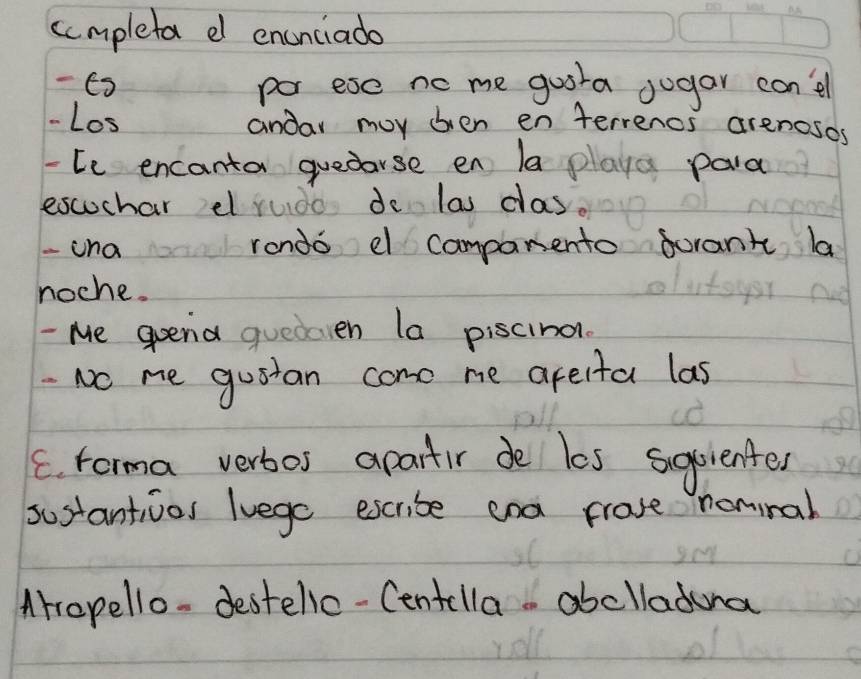 completa el enunciado
- Es por eso no me gusta jugar con él
- Los andar muy bien en terrenos arenosos
- Le encanta quedarse en la playa para
escuchar el ruido de las olas.
- una rondó el campamento durante la
noche.
- Me quería quedar en la piscina.
- No me gustan como me afeita las
E. Forma verbos apartir de los siguientes
sustantivos luego escribe una frase nominal
Atropello - destello - Centella - abolladura